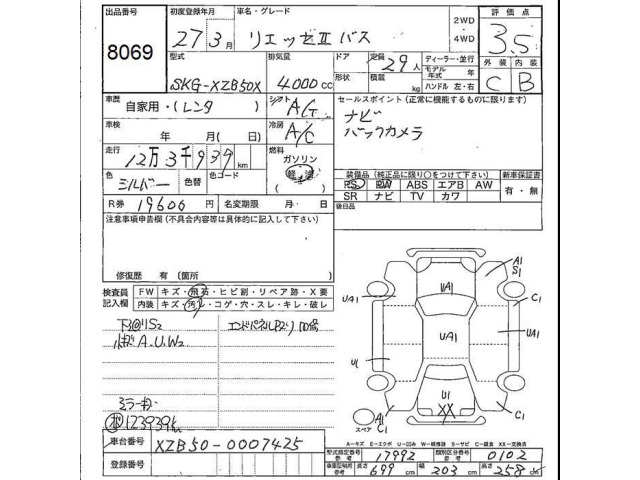 出品番号 8069
初度登録年月 27年3月
車名・グレード リエッセⅡ バス
2WD・4WD
評価点 3.5
型式 SKG-XZB50X
排気量 4000cc
ドア 形状
定員 29人
積載 kg
ディーラー・並行
モデル年式 年式
ハンドル 左・右
外装 C 内装 B
車歴 自家用・(レンタ)
シフト A/T
セールスポイント (正常に機能するものに限ります)
ナビ
バックカメラ
車検 年 月( 日)
冷房 A/C
走行 12万3千939km
燃料 ガソリン 軽油
色 シルバー 色替 色コード
装備品(純正品に限り○をつけて下さい) 新車保証書
PS PW ABS エアB AW 有・無
SR ナビ TV カワ
R券 19600円 名変期限 月 日
後日品
注意事項申告欄(不具合内容等は具体的に記入して下さい)
修復歴 有(箇所
検査員記入欄
FW キズ・飛石・ヒビ割・リペア跡・X要
内装 キズ・汚れ・コゲ・穴・スレ・キレ・破レ
下回りS2
A.U.W2
ミラーキズ
123939k
A1
S1
UA1
UA1
C1
UA1
UA1
U1
U1
XX
C1
A1
C1
スペア
A-キズ E-エクボ U-凹み W-補修跡 S-サビ C-腐食 XX-交換済
車台番号 XZB50-0007425
型式指定番号 参考 17992
類別区分番号 参考 0102
登録番号
車庫証明用参考 長さ 699cm 幅 203cm 高さ 258cm